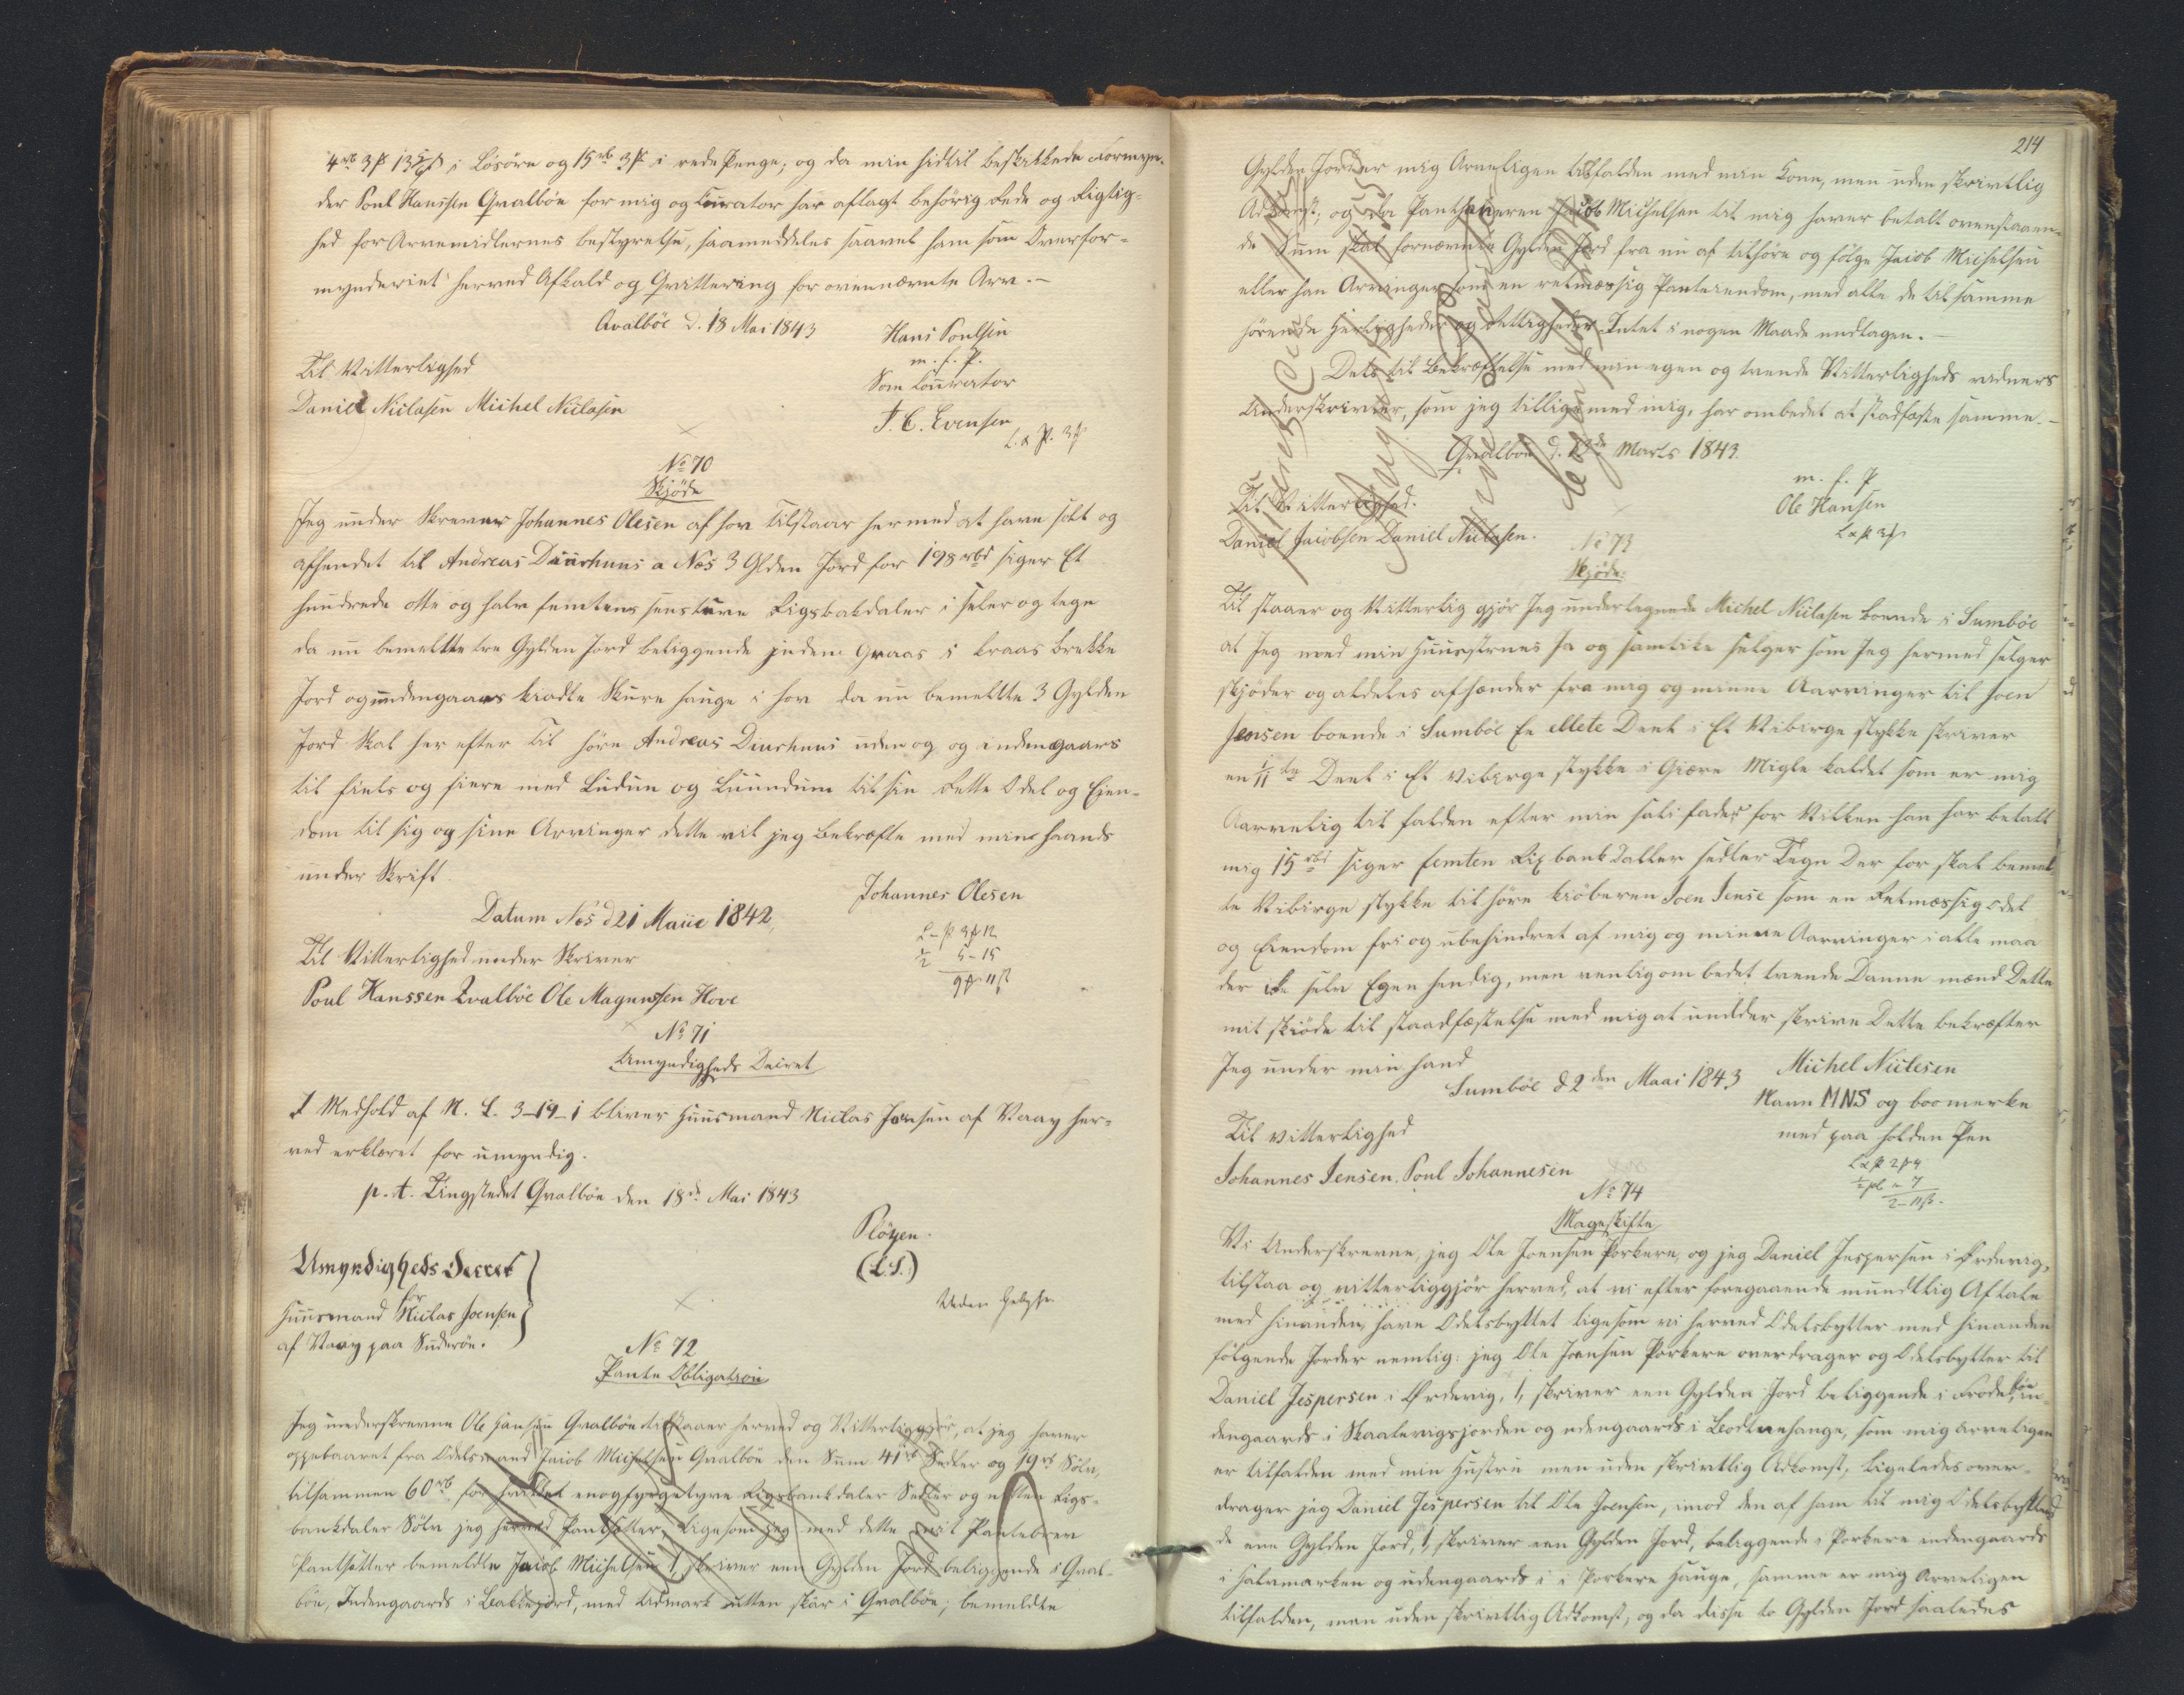 4 rb 3 ₰ 13 ß i Løsøre og 15 rb 3 ₰ i rede Penge; og da min hidtil beskikkede Formyn-
der Poul Hanssen Qvalböe for mig og Curator har aflagt behörig Rede og Rigtig-
hed for Arvemidlernes bestyrelse, saa meddeles saavel ham som Overfor-
mynderiet herved Afkald og Qvittering for ovennævnte Arv.-
Qvalböe d. 18 Mai 1843
Hans Poulsen
m. f. P.
Som Courator
J. C. Evensen
Til Vitterlighed
Daniel Niclasen Michel Niclasen
L. & P. 3 ₰
No 70
Skjöde
Jeg under Skrevne Johannes Olesen af Hov tilstaar hermed at have solt og
afhendet til Andreas Diurhuus a Næs 3 Glden Jord for 198 rbd siger Et
hundrede otte og halv femtens sens tuve Rigsbakdaler i seler og tegn
da nu bemeltte tre Gylden Jord beliggende inden Graas i Kraas brekke
Jord og undengaars kiadle Skure hauge i Hov da nu bemeltte 3 Gylden
Jord Skal her efter til høre Andreas Diurhuus uden og og indengaars
til fiels og fiere med Ludum og Luundum til sin Rette Odel og Eien-
dom til sig og sine Arvinger dette vil jeg bekræfte med mine haands
under Skrift.
Johannes Olesen
Datum Næs d 21 Maiie 1842,
Til Vitterlighed under Skriver
Poul Hanssen Qvalböe Ole Magnussen Hove
L - P 3 ₰ 12
1/2 5 - 15
9 ₰ 11 ß
No 71
Umyndigheds Decret
I Medhold af N. L. 3-19-1 bliver Huusmand Niclas Joensen af Vaag her-
ved erklæret for umyndig.
p. t. Tingstedet Qvalböe den 18de Mai 1843
Plöyen.
(L.S.)
Umyndigheds Decret
for
Huusmand Niclas Joensen
af Vaag paa Suderöe.
Uden Gebyhr
No 72
Pante Obligation
Jeg underskrevne Ole Hansen Qvalböe tilstaaer herved og Vitterliggjør, at jeg haver
oppebaaret fra Odelsmand Jacob Michelsen Qvalböe den Sum 41 rb Sedler og 19 rb Sölv,
tilsammen 60 rb, for hvilket enogfyrgetyve Rigsbankdaler Sedler og nitten Rigs-
bankdaler Sölv jeg herved Pantsetter, ligesom jeg med dette mit Pantebrev
Pantsætter bemeldte Jacob Michelsen 1, skriver een Gylden Jord beliggende i Qval-
böe, Indengaards i Bakkegjord, med Udmark utten skär i Qvalböe; bemeldte
214
Gylden Jord er mig Arveligen tilfalden med min Kone, men uden skrivtlig
Adkomst; og da Panthaveren Jacob Michelsen til mig haver betalt ovenstaaen-
de Sum skal fornævnte Gylden Jord fra nu af tilhöre og fölge Jacob Michelsen
eller han Arvinger som en retmæssig Panteiendom, med alle de til samme
hörende Herligheder og Rettigheder Intet i nogen Maade undtagen.-
Dets til Bekræftelse med min egen og tvende Vitterligheds vidners
Underskrivter, som jeg tilligemed mig, har ombedet at stadfæste samme.-
Qvalböe d. 12de Marts 1843.
m. f. P
Ole Hansen
Til Vitterlighed.
Daniel Jacobsen Daniel Niclasen.
No 73
Skjöde:
Til staaer og Vitterlig gjör Jeg undertegnede Michel Niclasen boende i Sumböe
at Jeg med min Huustrues Ja og samtike selger som Jeg hermed selger
skjöder og aldeles afhænder fra mig og minne Aarvinger til Joen
Jensen boende i Sumböe En ellete Deel i Et Vibirge stykke skriver
en 1/11 te Deel i Et Viberge stykke i Giære Migle kaldet som er mig
Aarvelig til falden efter min sali fader for Vilken han har betalt
mig 15 rbd siger femten Rixbank Daller sedler Tegn Der for skal bemel-
te Vibirge stykke til høre kiöberen Joen Jense som en Retmæssig odel
og Eiendom fri og ubehindret af mig og minne Aarvinger i alle maa
der ike selv Egen hendig, men venlig om bedet tvende Danne mænd Dette
mit skiöde til staadfæstelse med mig at undder skrive Dette bekræfter
Jeg under min hand
Sumböe d 2den Maai 1843
Michel Niclesen
Navn MNS og boomerke
med paa holden Pen
Til vitterlighed
Johannes Jensen. Poul Johannesen
No 74
Mageskifte
Vi Underskrevne, jeg Ole Joensen Porkere, og jeg Daniel Jespersen i Ördevig,
tilstaa og vitterliggjör herved, at vi efter foregaaende mundtlig Aftale
med hinanden, have Odelsbyttet ligesom vi herved Odelsbytter med hinanden
fölgende Jorder nemlig: jeg Ole Joensen Porkere overdrager og Odelsbytter til
Daniel Jespersen i Ördevig, 1, skriver een Gylden Jord beliggende i Frodeböe, in-
dengaards i Skaalevigsjorden og udengaards i Bodlenhauge, som mig arveligen
er tilfalden med min Hustru men uden skrivtlig Adkomst, ligeledes over-
drager jeg Daniel Jespersen til Ole Joensen, imod den af ham til mig Odelsbytten-
de ene Gylden Jord, 1, skriver een Gylden Jord, beliggende i Porkere indengaards
i Halamarken og udengaards i i Porkere Hauge, samme er mig arveligen
tilfalden, men uden skrivtlig Adkomst; og da disse to Gylden Jord saaledes